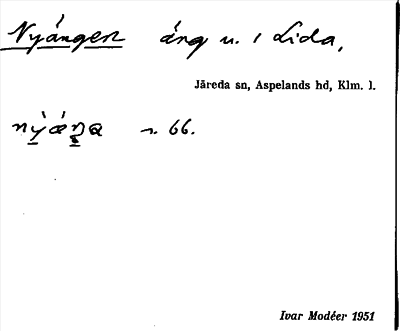 Nyängen äng u. 1 Lida,
Järeda sn, Aspelands hd, Klm. l.
n. 66.
Ivar Modéer 1951